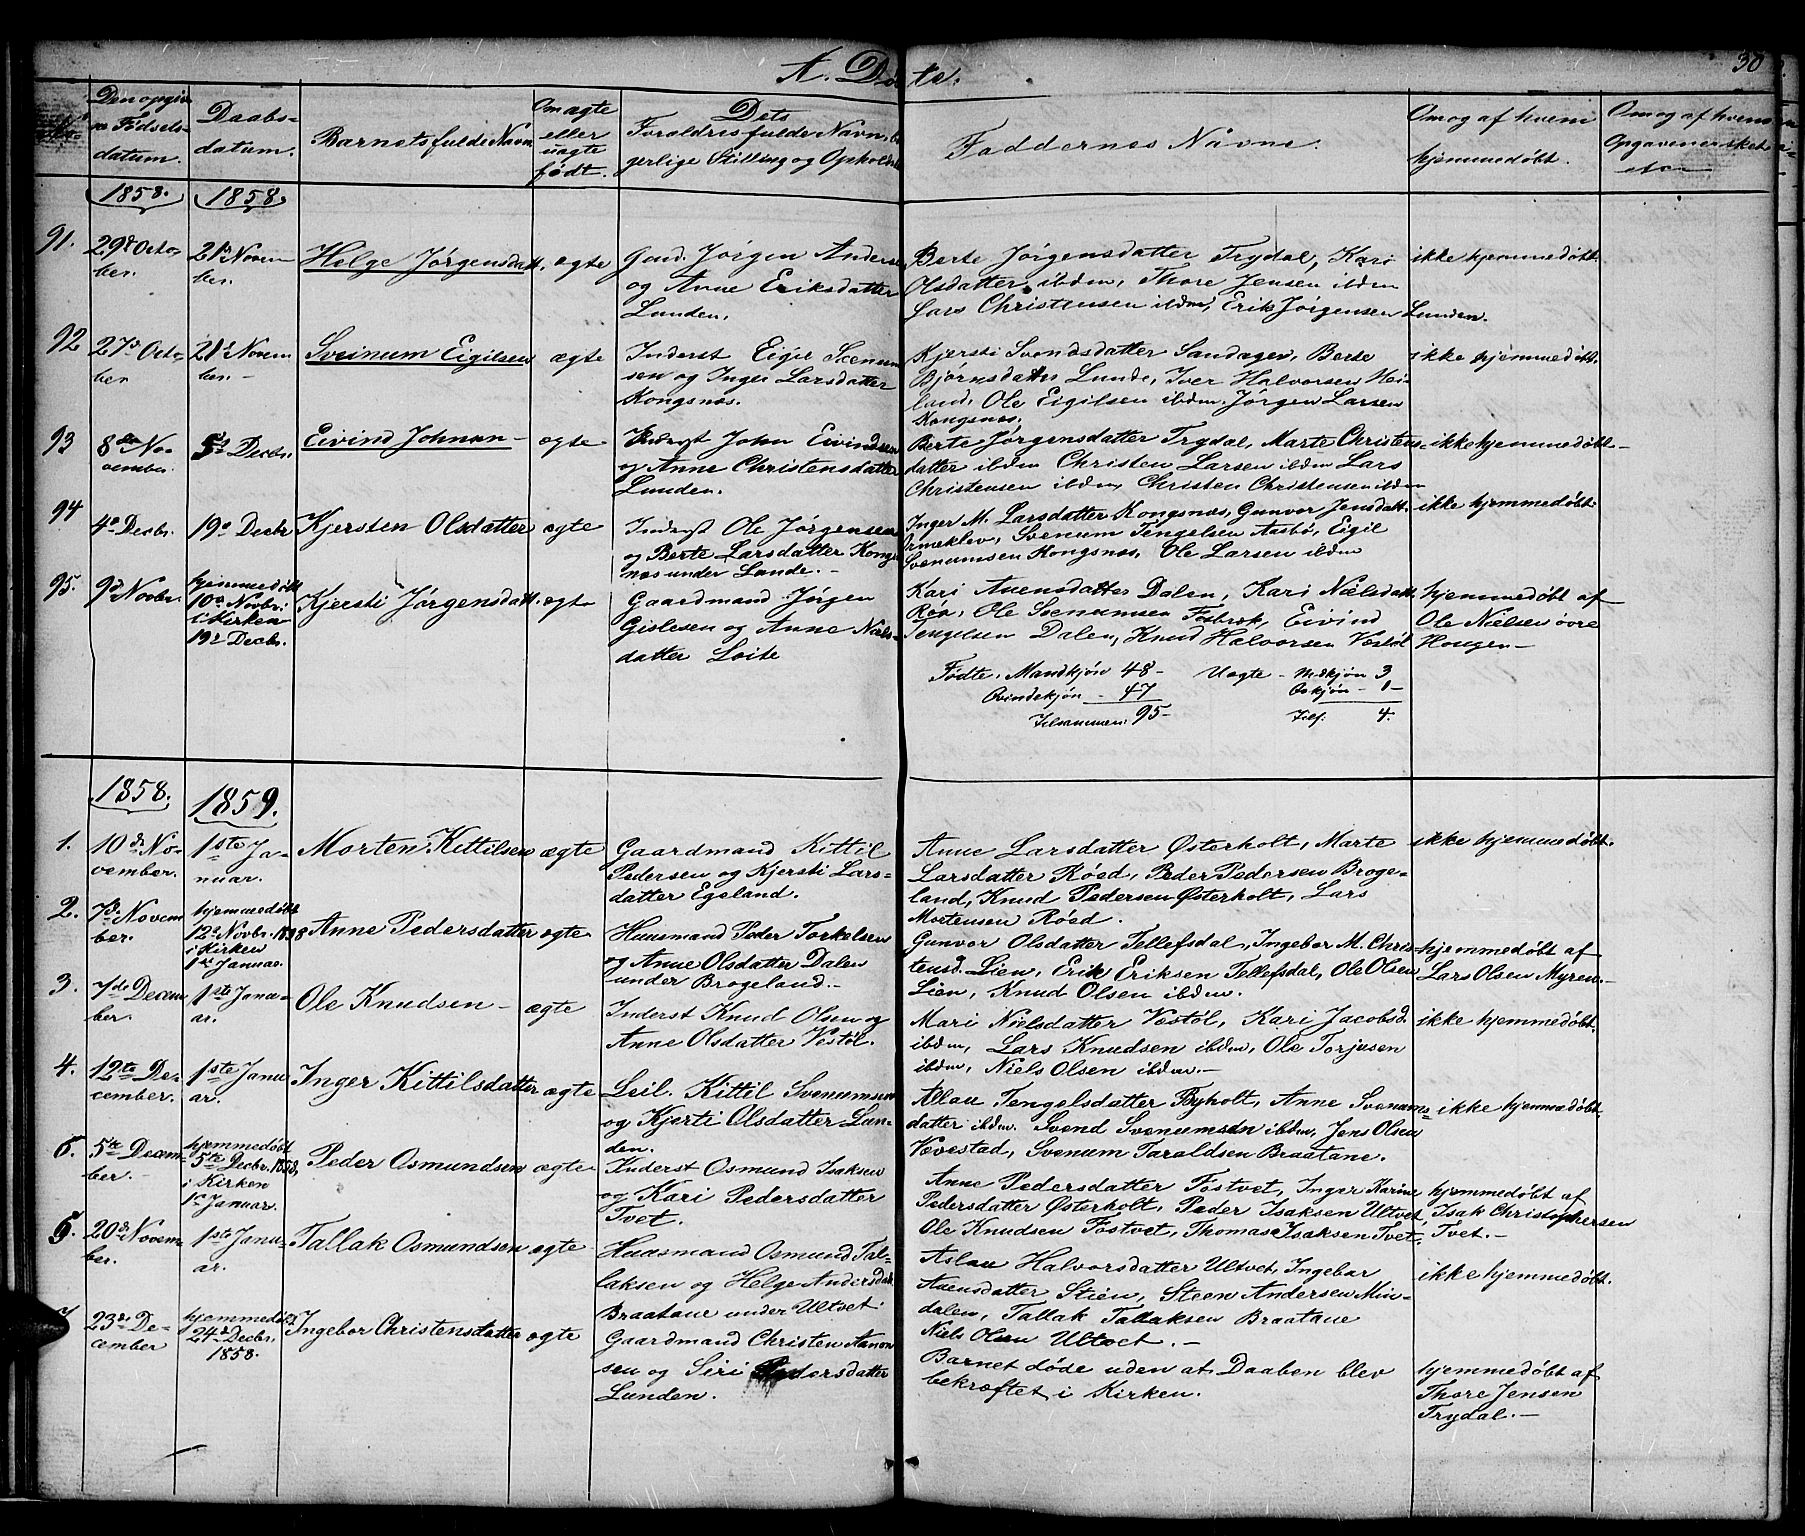 A. Døbte.
30
No
Den opgivne Fødselsdatum.
Daabsdatum.
Barnets fulde Navn
Om ægte eller uægte født.
Dets Forældres fulde Navn, borgerlige Stilling og Opholdsted
Faddernes Navne.
Om og af hvem hjemmedøbt.
Om og af hvem Opgaven er sket
1858.
1858.
91.
29de Octo-
ber.
21de Novem
ber.
Helge Jørgensdatt.
ægte
Gmd. Jørgen Anders
og Anne Eriksdatter
Lunden.
Berte Jørgensdatter Trydal, Kari
Olsdatter ibdm, Thore Jensen ibdm
Lars Christensen ibdm, Erik Jørgensen Lunden.
ikke hjemmedøbt.
92
27de Octo-
ber
21de Novem
ber.-
Svenum Eigilsen
ægte
Inderst Eigil Svenum
sen og Inger Larsdatter
Kongsnæs.
Kjersti Svendsdatter Sandager, Berte
Bjørnsdatter Lunde, Iver Halvorsen Hei-
land, Ole Eigilsen ibdm. Jørgen Larsen
Kongsnæs.
ikke hjemmedøbt.
93
8de No-
vember.
5te Decbr.
Eivind Johnsen-
ægte
Inderst John Eivindsen
og Anne Christensdatter
Lunden.
Berte Jørgensdatter Trydal, Marte Christens-
datter ibdm Christen Larsen ibdm Lars
Christensen ibdm, Christen Christensen ibdm
ikke hjemmedøbt-
94
4de Decbr.
19de Decbr
Kjersten Olsdatter
ægte
Inderst Ole Jørgensen
og Berte Larsdatter Kongs
næs under Lunde.-
Inger M. Larsdatter Kongsnæs, Gunvor Jensdatt.
Ormeklev, Svenum Tengelsen Aasbø, Eigil
Svenumsen Kongsnæs, Ole Larsen ibdm
ikke hjemmedøbt.
95.
9de Novbr.
hjemmedøbt
10de Novbr.
i Kirken
19de Decbr.
Kjersti Jørgensdatt.
ægte
Gaardmand Jørgen
Gislesen og Anne Niels-
datter Loite
Kari Auensdatter Dalen, Kari Nielsdatt.
Røn, Ole Svenumsen Fosbræk, Eivind
Tengelsen Dalen, Knud Halvorsen Vestøl
hjemmedøbt af
Ole Nielsen øvre
Hougen-
Fødte, Mandkjøn 48-
Uægte - Mndkjøn 3
Qvindekjøn - 47
Qvkjøn - 1-
Tilsammen: 95-
Tils: 4.
1858.
1859.
1.
10de No-
vember.
1ste Ja-
nuar.
Morten Kittilsen
ægte
Gaardmand Kittil
Pedersen og Kjersti Lars-
datter Egeland.
Anne Larsdatter Østerholt, Marte
Larsdatter Røed, Peder Pedersen Broge-
land, Knud Pedersen Østerholt, Lars
Mortensen Røed.
ikke hjemmedøbt.
2.
7de Novem
ber.
hjemmedøbt
12de Novbr. 1858
i Kirken
1ste Januar.
Anne Pedersdatter
ægte
Huusmand Peder Torkelsen
og Anne Olsdatter Dalen
under Brogeland.-
Gunvor Olsdatter Tellefsdal, Ingebor M. Chris-
tensd. Lien, Erik Eriksen Tellefsdal, Ole Olsen
Lien, Knud Olsen ibdm.
hjemmedøbt af
Lars Olsen Myren.-
3.
7de Decem
ber.
1ste Janu-
ar.
Ole Knudsen-
ægte
Inderst Knud Olsen og
Anne Olsdatter Vestøl.
Mari Nielsdatter Vestøl, Kari Jacobsd.
ibdm, Lars Knudsen ibdm, Ole Torjusen
ibdm, Niels Olsen ibdm.-
ikke hjemmedøbt.
4.
12te De-
cember.
1ste Janu
ar.
Inger Kittilsdatter
ægte
Leil. Kittil Svenumsen
og Kjerti Olsdatter Lun-
den.
Allau Tengelsdatter Byholt, Anne Svenums-
datter ibdm. Svend Svenumsen ibdm, Jens Olsen
Vævestad, Svenum Taraldsen Braatane.
ikke hjemmedøbt.
5.
5te Decem-
ber.-
hjemmedøbt
5te Decbr. 1858,
i Kirken
1ste Januar.
Peder Osmundsen
ægte
Inderst Osmund Isaksen
og Kari Pedersdatter
Tvet.
Anne Pedersdatter Fostvet, Inger Karine
Pedersdatter Østerholt, Peder Isaksen Ultvet,
Ole Knudsen Fostvet, Thomas Isaksen Tvet.
hjemmedøbt af
Isak Christophersen
Tvet.-
6.
20de Novem-
ber.
1ste Janu-
ar.
Tallak Osmundsen
ægte
Huusmand Osmund Tal-
laksen og Helge Andersdat.
Braatane under Ultvet.
Aslau Halvorsdatter Ultvet, Ingebor
Auensdatter Stien, Steen Andersen Min-
dalen, Tallak Tallaksen Braatane
Niels Olsen Ultvet.-
ikke hjemmedøbt.
7
23de De-
cember
hjemmedøbt
24de Decbr.
1858.
Ingebor Christensdatter
ægte
Gaardmand Christen Aanon
sen og Siri Pedersdatter
Lunden.
Barnet døde uden at Daaben blev
bekræftet i Kirken.
hjemmedøbt af
Thore Jensen
Trydal.-